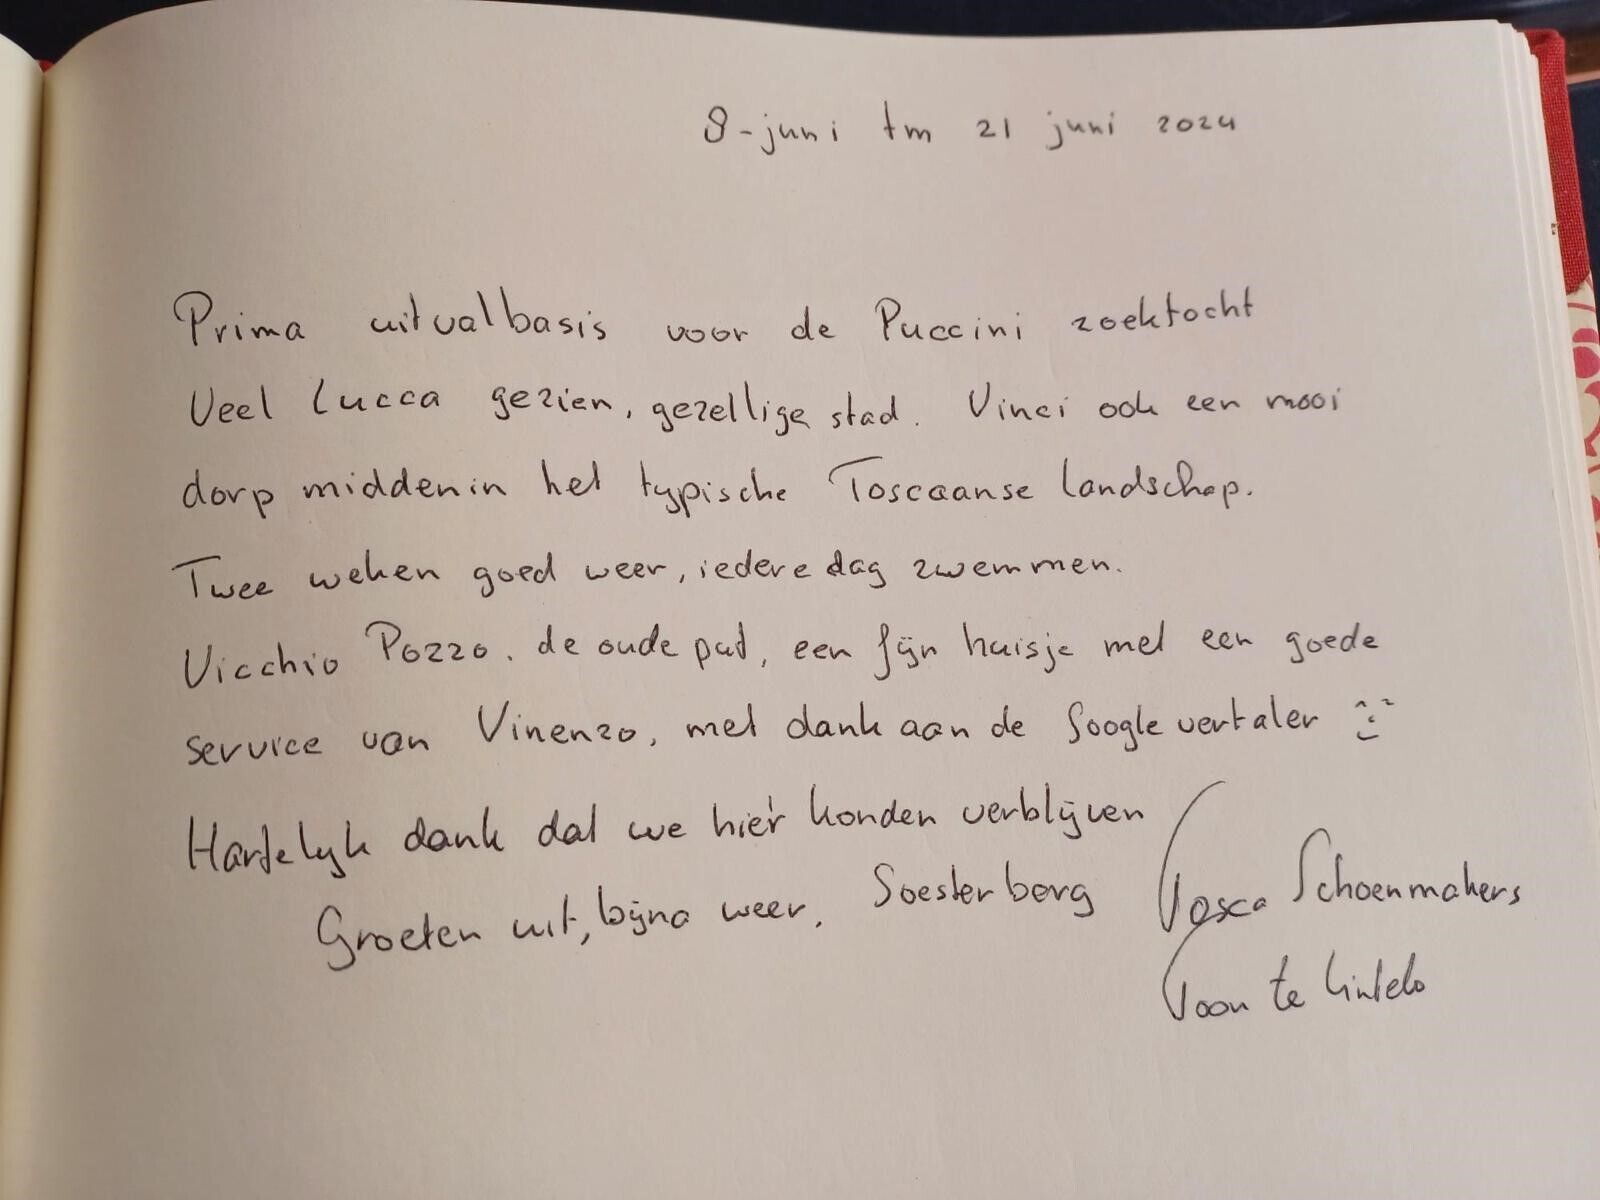 8-juni tm 21 juni 2024
Prima uitvalbasis voor de Puccini zoektocht
Veel Lucca gezien, gezellige stad. Vinci ook een mooi
dorp middenin het typische Toscaanse landschap.
Twee weken goed weer, iedere dag zwemmen.
Vicchio Pozzo. de oude put, een fijn huisje met een goede
service van Vinenzo, met dank aan de Google vertaler
Hartelijk dank dat we hier konden verblijven
Groeten uit, bijna weer, Soesterberg Tosca Schoenmakers
Toon te Lintelo